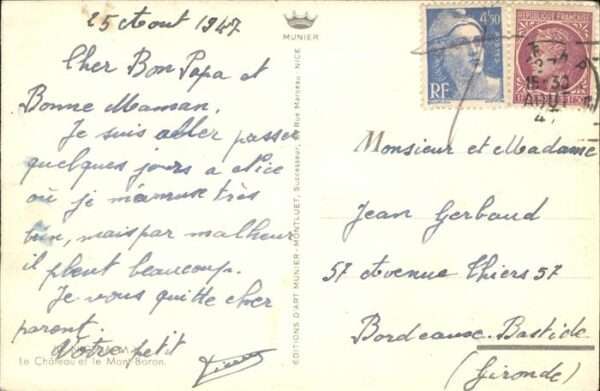 25 Aout 1947
Cher Bon Papa et
Bonne Maman.
Je suis aller passer
quelques jours a Nice
où je m'amuse très
bien, mais par malheur
il pleut beaucoup.
Je vous quitte cher
parent.
Votre petit
Le Château et le Mont Boron.
MUNIER
EDITIONS D'ART MUNIER - MONTLUET, Successeur, Rue Marceau, NICE
4F50
POSTES
RF
REPUBLIQUE FRANÇAISE
15-30
AOUT
Monsieur et Madame
Jean Gerbaud
57 Avenue Thiers 57
Bordeaux-Bastide
(Gironde)